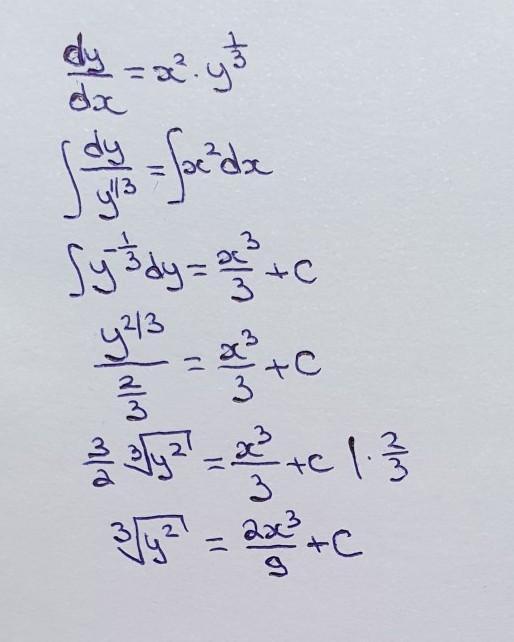 dy/dx = x² · y^(1/3)
∫ dy/y^(1/3) = ∫ x² dx
∫ y^(-1/3) dy = x³/3 + C
y^(2/3) / (2/3) = x³/3 + C
3/2 ∛(y²) = x³/3 + C | · 2/3
∛(y²) = 2x³/9 + C